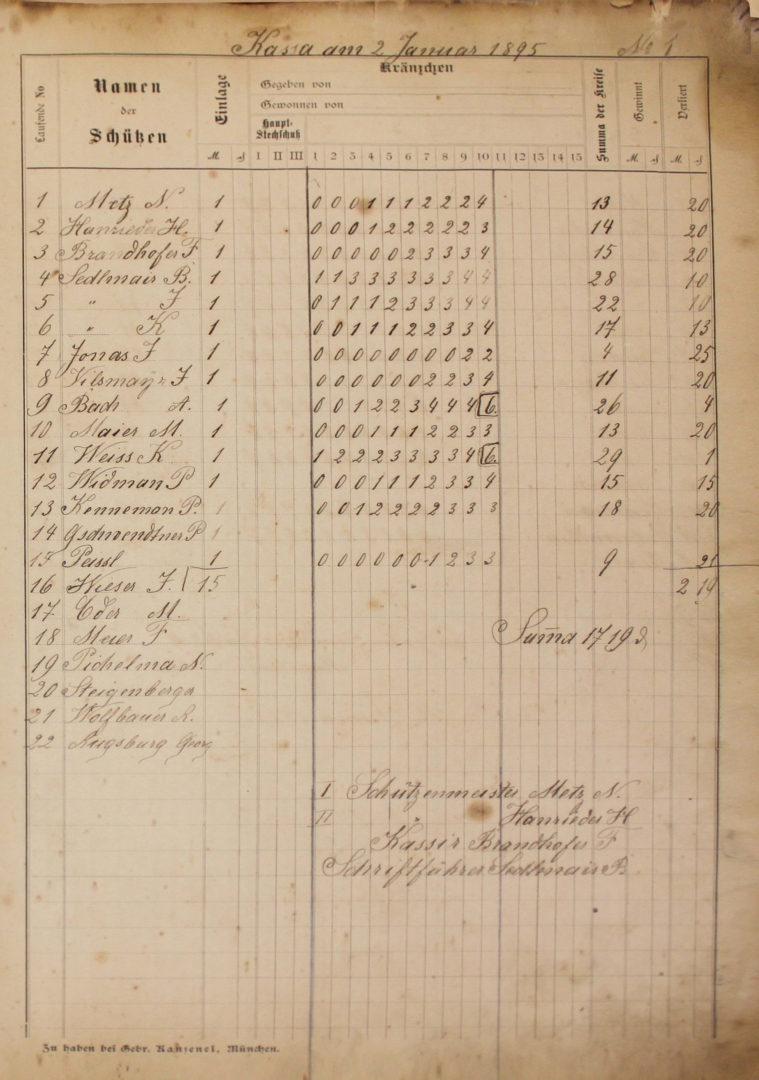 Kassa am 2 Januar 1895 No 1
Laufende No
Namen der Schützen
Einlage
Kränzchen
Gegeben von
Gewonnen von
Haupt-Stechschuß
Summa der Kreise
Gewinnt
Verliert
M. ₰ I II III 1 2 3 4 5 6 7 8 9 10 11 12 13 14 15 M. ₰ M. ₰
1 Metz N. 1 0 0 0 1 1 1 2 2 2 4 13 20
2 Hanrieder H. 1 0 0 0 1 2 2 2 2 2 3 14 20
3 Brandhofer F 1 0 0 0 0 0 2 3 3 3 4 15 20
4 Sedlmair B. 1 1 1 3 3 3 3 3 3 4 4 28 10
5 " J 1 0 1 1 1 2 3 3 3 4 4 22 10
6 " K 1 0 0 1 1 1 2 2 3 3 4 17 13
7 Jonas J 1 0 0 0 0 0 0 0 0 2 2 4 25
8 Vilsmayr J 1 0 0 0 0 0 0 2 2 3 4 11 20
9 Bach A. 1 0 0 1 2 2 3 4 4 4 6. 26 4
10 Maier M. 1 0 0 0 1 1 1 2 2 3 3 13 20
11 Weiss K 1 1 2 2 2 3 3 3 3 4 6. 29 1
12 Widman P 1 0 0 0 1 1 1 2 3 3 4 15 15
13 Kennemon P. 1 0 0 1 2 2 2 2 3 3 3 18 20
14 Gschwendtner P 1
15 Passl 1 0 0 0 0 0 0 1 2 3 3 9 21
16 Wieser J. 15 2 19
17 Eder M.
18 Meier F Suma 17 19
19 Pichelma N.
20 Steigenberger
21 Wolfbauer R.
22 Augsburg Georg
I Schützenmeister Metz N.
II " Hanrieder H
Kassir Brandhofer F
Schriftführer Sedlmair B.
Zu haben bei Gebr. Kanzenel, München.